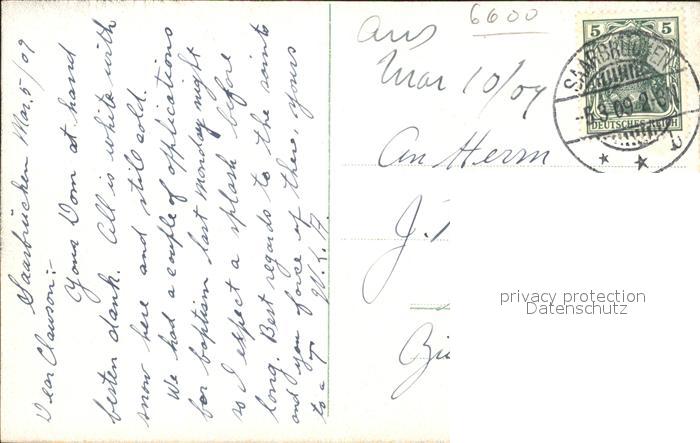 Saarbrücken Mar. 5/09
Dear Clawson:-
Your Dom at hand
besten dank. All is white with
snow here and still cold.
We had a couple of applications
for baptism last Monday night
so I expect a splash before
long. Best regards to the saints
and you force of there, yours
to a
6600
ans
Mar 10/09
An Herrn
J.
5 5
SAARBRÜCKEN
-5.3.09.
DEUTSCHES REICH
privacy protection
Datenschutz